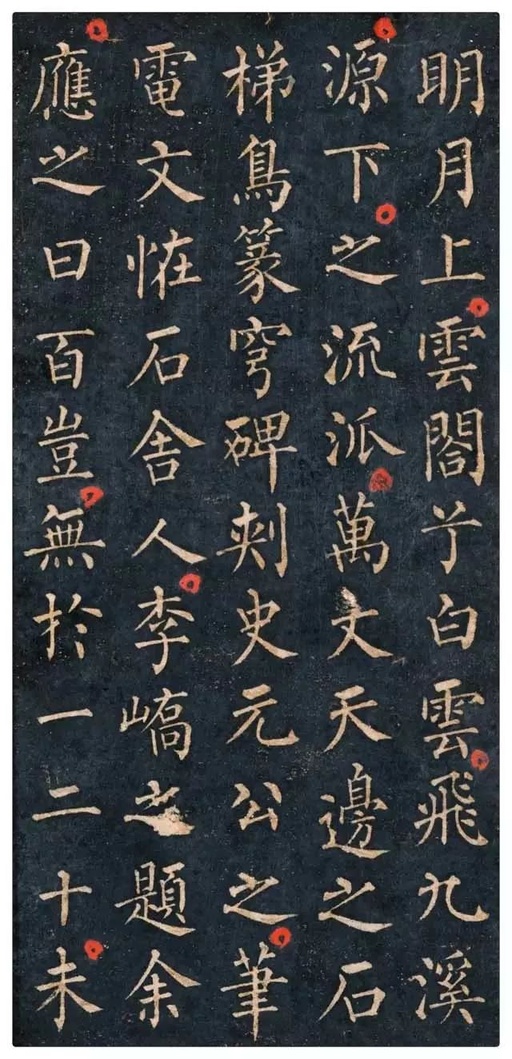 明月上雲閤兮白雲飛九溪
源下之流派萬丈天邊之石
梯鳥篆穹碑刺史元公之筆
電文恠石舍人李嶠之題余
應之曰百豈無於一二十未